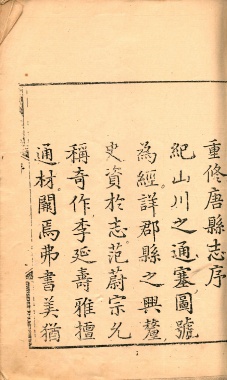 重修唐縣志序
紀山川之通塞圖號
為經詳郡縣之興釐
史資於志范蔚宗允
稱奇作李延壽雅擅
通材闕焉弗書美猶